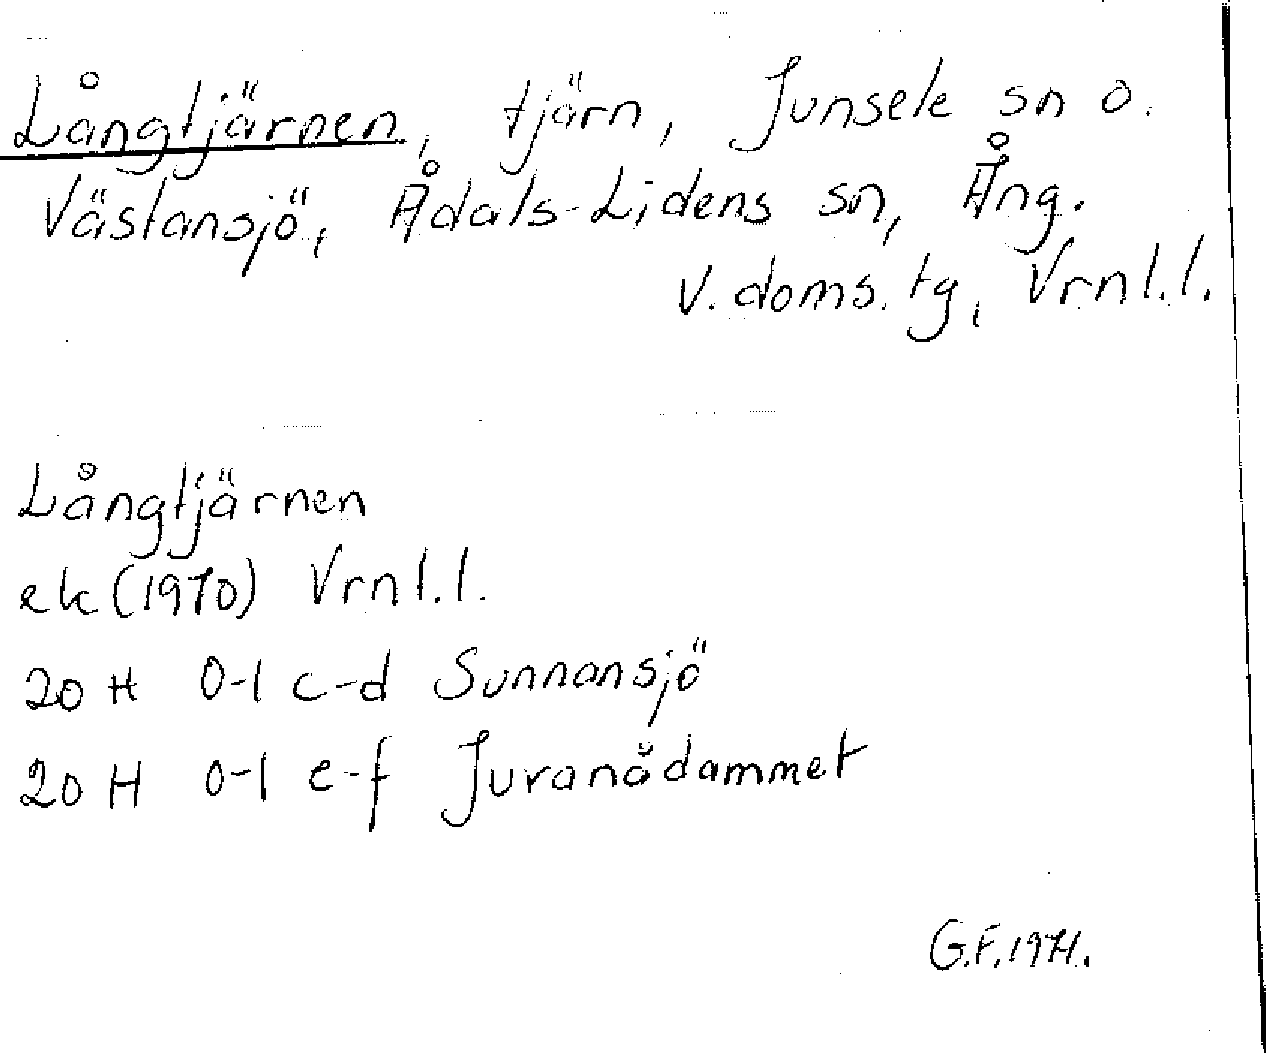 Långtjärnen, tjärn, Junsele sn o.
Västansjö, Ådals-Lidens sn, Ång.
V. doms. tg, Vrnl.l.
Långtjärnen
ek (1970) Vrnl.l.
20 H 0-1 c-d Sunnansjö
20 H 0-1 e-f Juvanådammet
G.F. 1971.